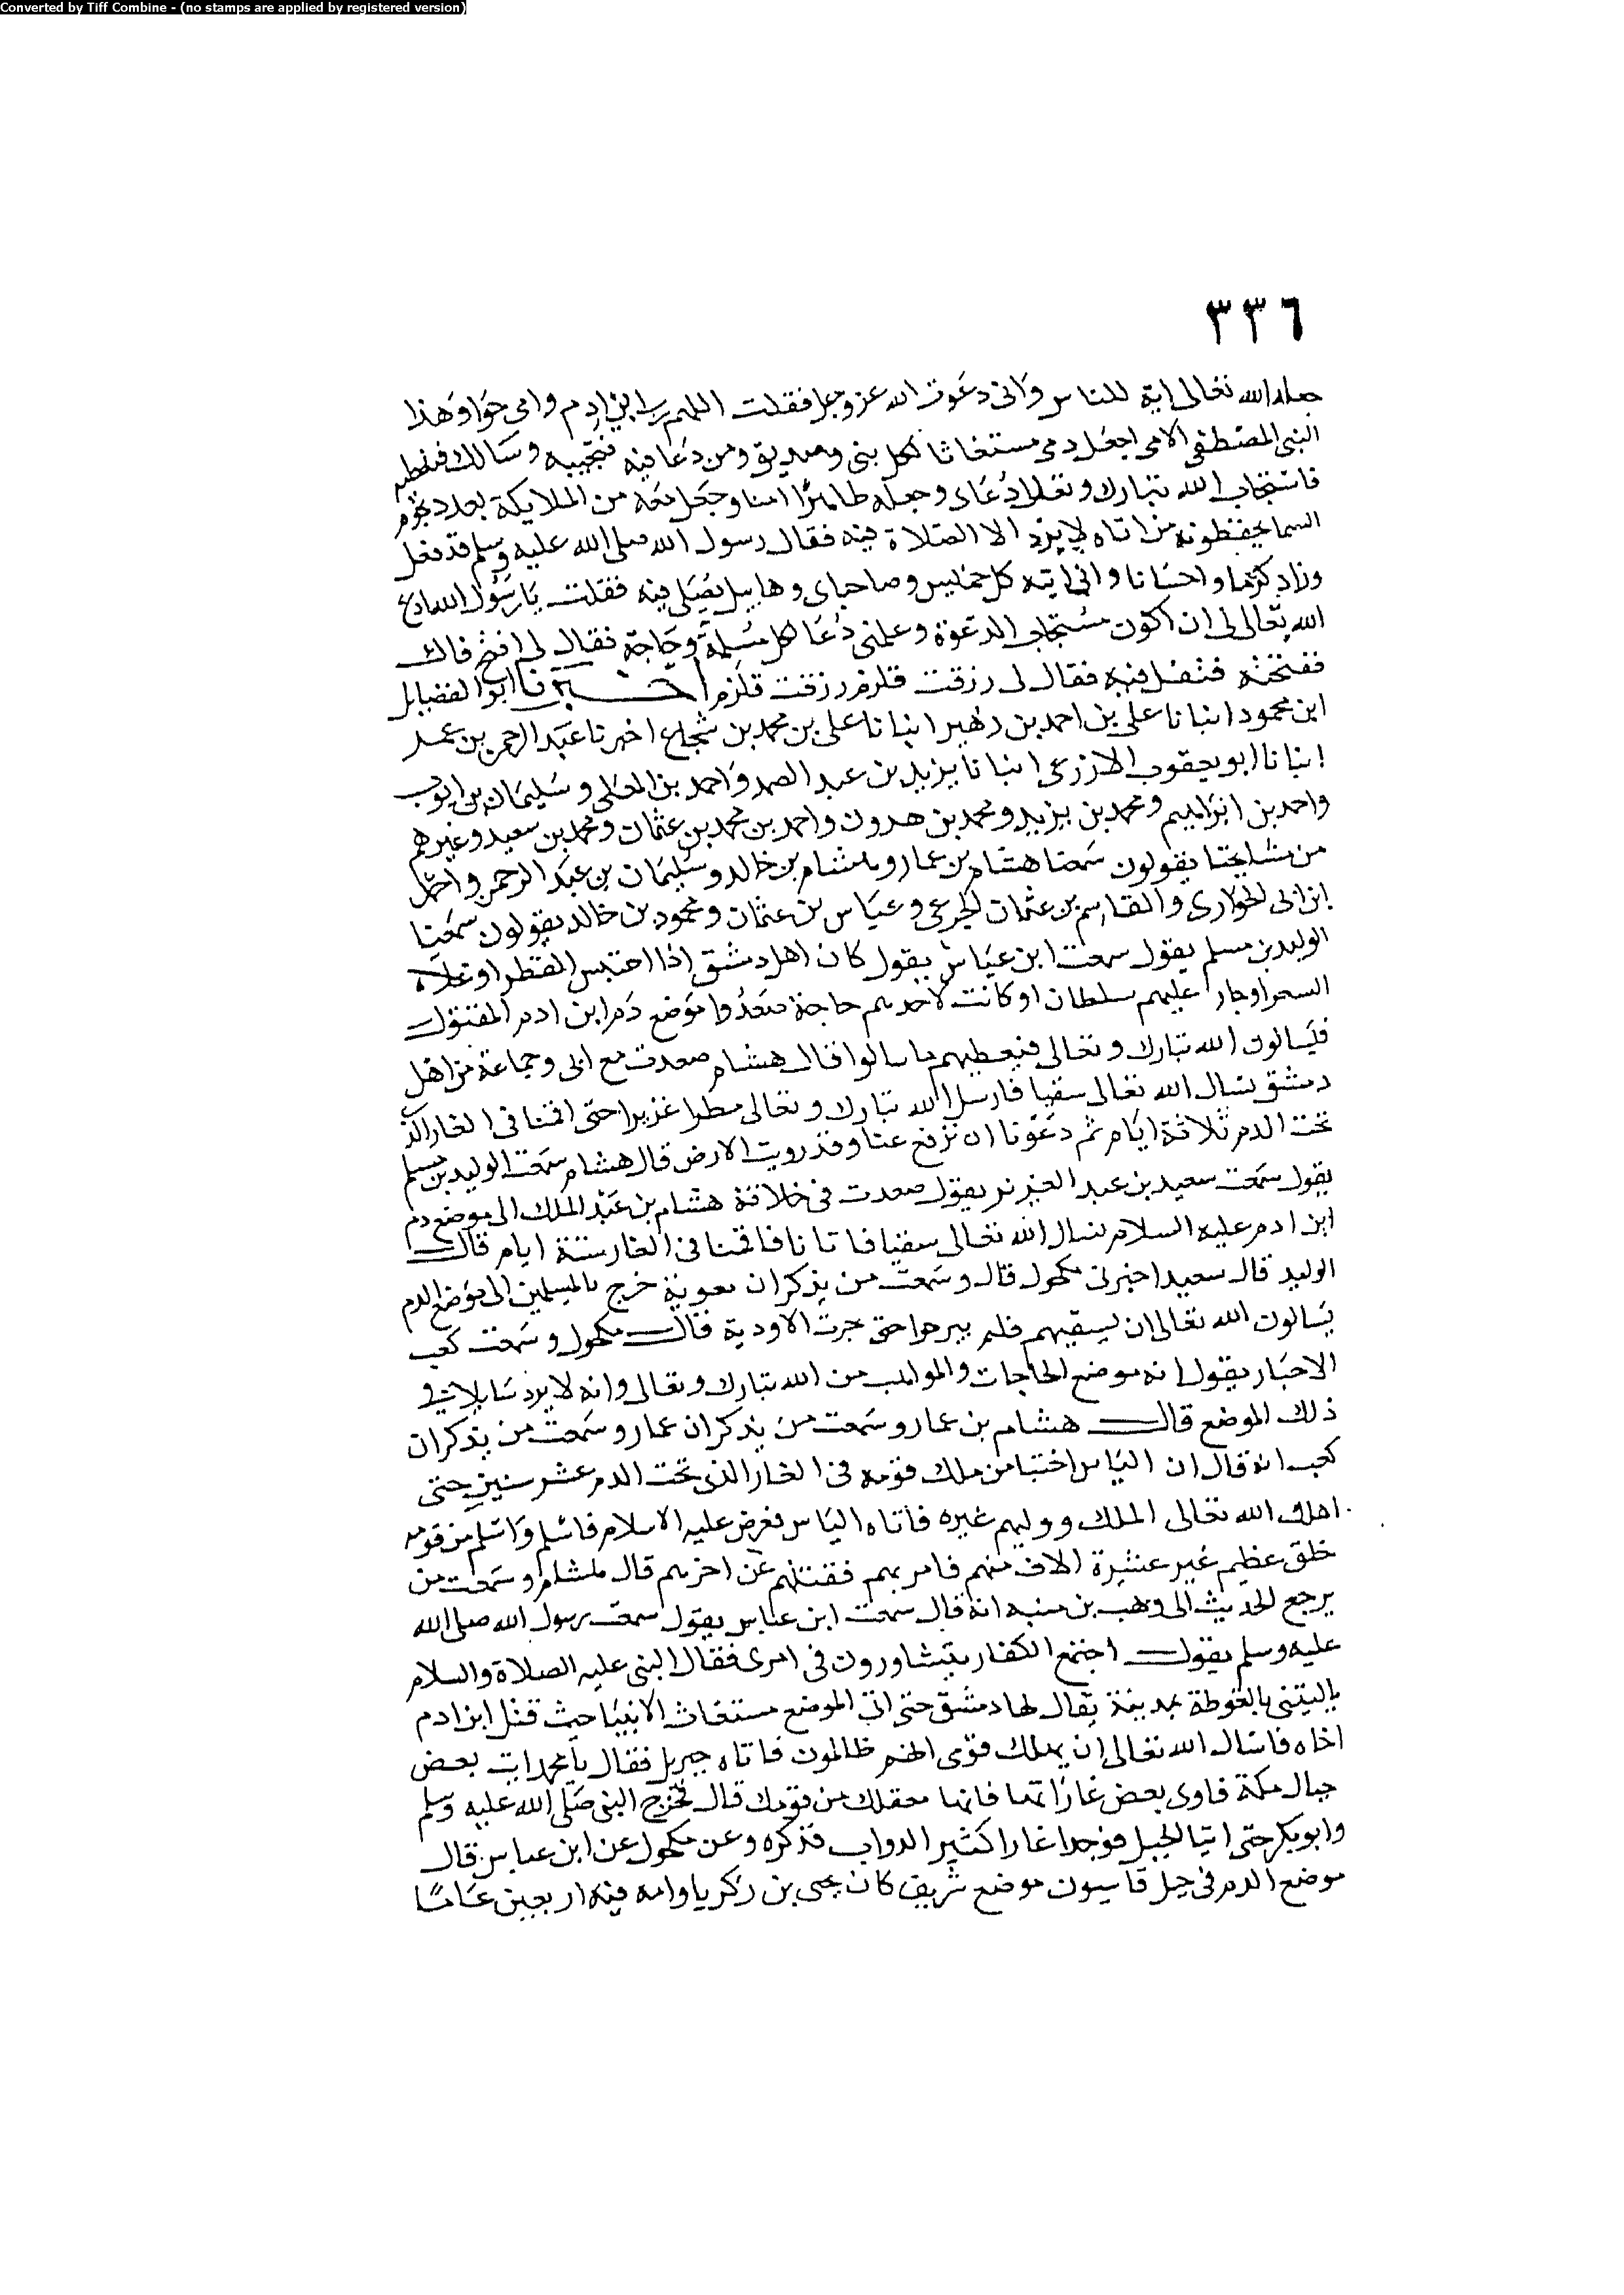 Converted by Tiff Combine - (no stamps are applied by registered version)
٣٣٦
جعله الله تعالى اية للناس وانى دعوت الله عز وجل فقلت اللهم رب ابى ادم وامى حوا وهذا
النبى المصطفى الامى اجعل دمى مستغاثا لكل نبى وصديق ومن دعا فيه فتجيبه وسالك فتعطيه
فاستجاب الله تبارك وتعالى دعاى وجعله طاهرا امنا وجعل معه من الملايكة بعدد نجوم
السما يحفظونه من اتاه لا يريد الا الصلاة فيه فقال رسول الله صلى الله عليه وسلم قد فعل
وزاد كرما واحسانا وانى اتيه كل خميس وصاحباى وهابيل نصلى فيه فقلت يا رسول الله ادع
الله تعالى لى ان اكون مستجاب الدعوة وعلمنى دعا لكل مسلمة وحاجة فقال لى افتح فاك
ففتحته فتفل فيه فقال لى رزقت فلزم رزقت فلزم اخبرنا ابو الفضايل
ابن محمود انبانا على بن احمد بن زهير انبانا على بن محمد بن شجاع اخبرنا عبد الرحمن بن عمر
انبانا ابو يعقوب الاذرعى انبانا يزيد بن عبد الصمد واحمد بن المعلى وسليمان بن ايوب
واحمد بن ابراهيم ومحمد بن يزيد ومحمد بن هرون واحمد بن محمد بن عثمان ومحمد بن سعيد وغيرهم
من مشايخنا يقولون سمعنا هشام بن عمار وهشام بن خالد وسليمان بن عبد الرحمن واحمد
ابن ابى الحوارى والقاسم بن عثمان الجوعى وعياس بن عثمان ومحمود بن خالد يقولون سمعنا
الوليد بن مسلم يقول سمعت ابن عياش يقول كان اهل دمشق اذا احتبس القطر او غلاه
السعر او جار عليهم سلطان او كانت لاحدهم حاجة صعدوا موضع دم ابن ادم المقتول
فيسالون الله تبارك وتعالى فيعطيهم ما سالوا قال هشام صعدت مع ابى وجماعة من اهل
دمشق نسال الله تعالى سقيا فارسل الله تبارك وتعالى مطرا غزيرا حتى اقمنا فى الغار الذى
تحت الدم ثلاثة ايام ثم دعونا ان ترفع عنا وقد رويت الارض قال هشام سمعت الوليد بن مسلم
يقول سمعت سعيد بن عبد العزيز يقول صعدت فى خلافة هشام بن عبد الملك الى موضع دم
ابن ادم عليه السلام نسال الله تعالى سقيا فاتانا فاقمنا فى الغار ستة ايام قال
الوليد قال سعيد اخبرنى مكحول قال وسمعت من يذكر ان معوية خرج بالمسلمين الى موضع الدم
يسالون الله تعالى ان يسقيهم فلم يبرحوا حتى جرت الاودية قال مكحول وسمعت كعب
الاحبار يقول انه موضع الحاجات والمواهب من الله تبارك وتعالى وانه لا يرد سايلا فى
ذلك الموضع قال هشام بن عمار وسمعت من يذكر ان عمار وسمعت من يذكر ان
كعب انه قال ان الياس اختبا من ملك قومه فى الغار الذى تحت الدم عشر سنين حتى
اهلك الله تعالى الملك ووليهم غيره فاتاه الياس فعرض عليه الاسلام فاسلم واسلم من قومه
خلق عظيم غير عشرة الاف منهم فامر بهم فقتلهم عن اخرهم قال هشام وسمعت من
يرجع الحديث الى وهب بن منبه انه قال سمعت ابن عباس يقول سمعت رسول الله صلى الله
عليه وسلم يقول اجتمع الكفار يتشاورون فى امرى فقال النبى عليه الصلاة والسلام
يا ليتنى بالغوطة بمدينة يقال لها دمشق حتى اتى الموضع مستغاث الانبيا حيث قتل ابن ادم
اخاه فاسال الله تعالى ان يهلك قومى انهم ظالمون فاتاه جبريل فقال يا محمد ايت بعض
جبال مكة فاوى بعض غاراتها فانها معقلك من قومك قال فخرج النبى صلى الله عليه وسلم
وابو بكر حتى اتيا الجبل فوجدا غارا كثير الدواب فذكره وعن مكحول عن ابن عباس قال
موضع الدم فى جبل قاسيون موضع شريف كان يحيى بن زكريا وامه فيه اربعين عاما